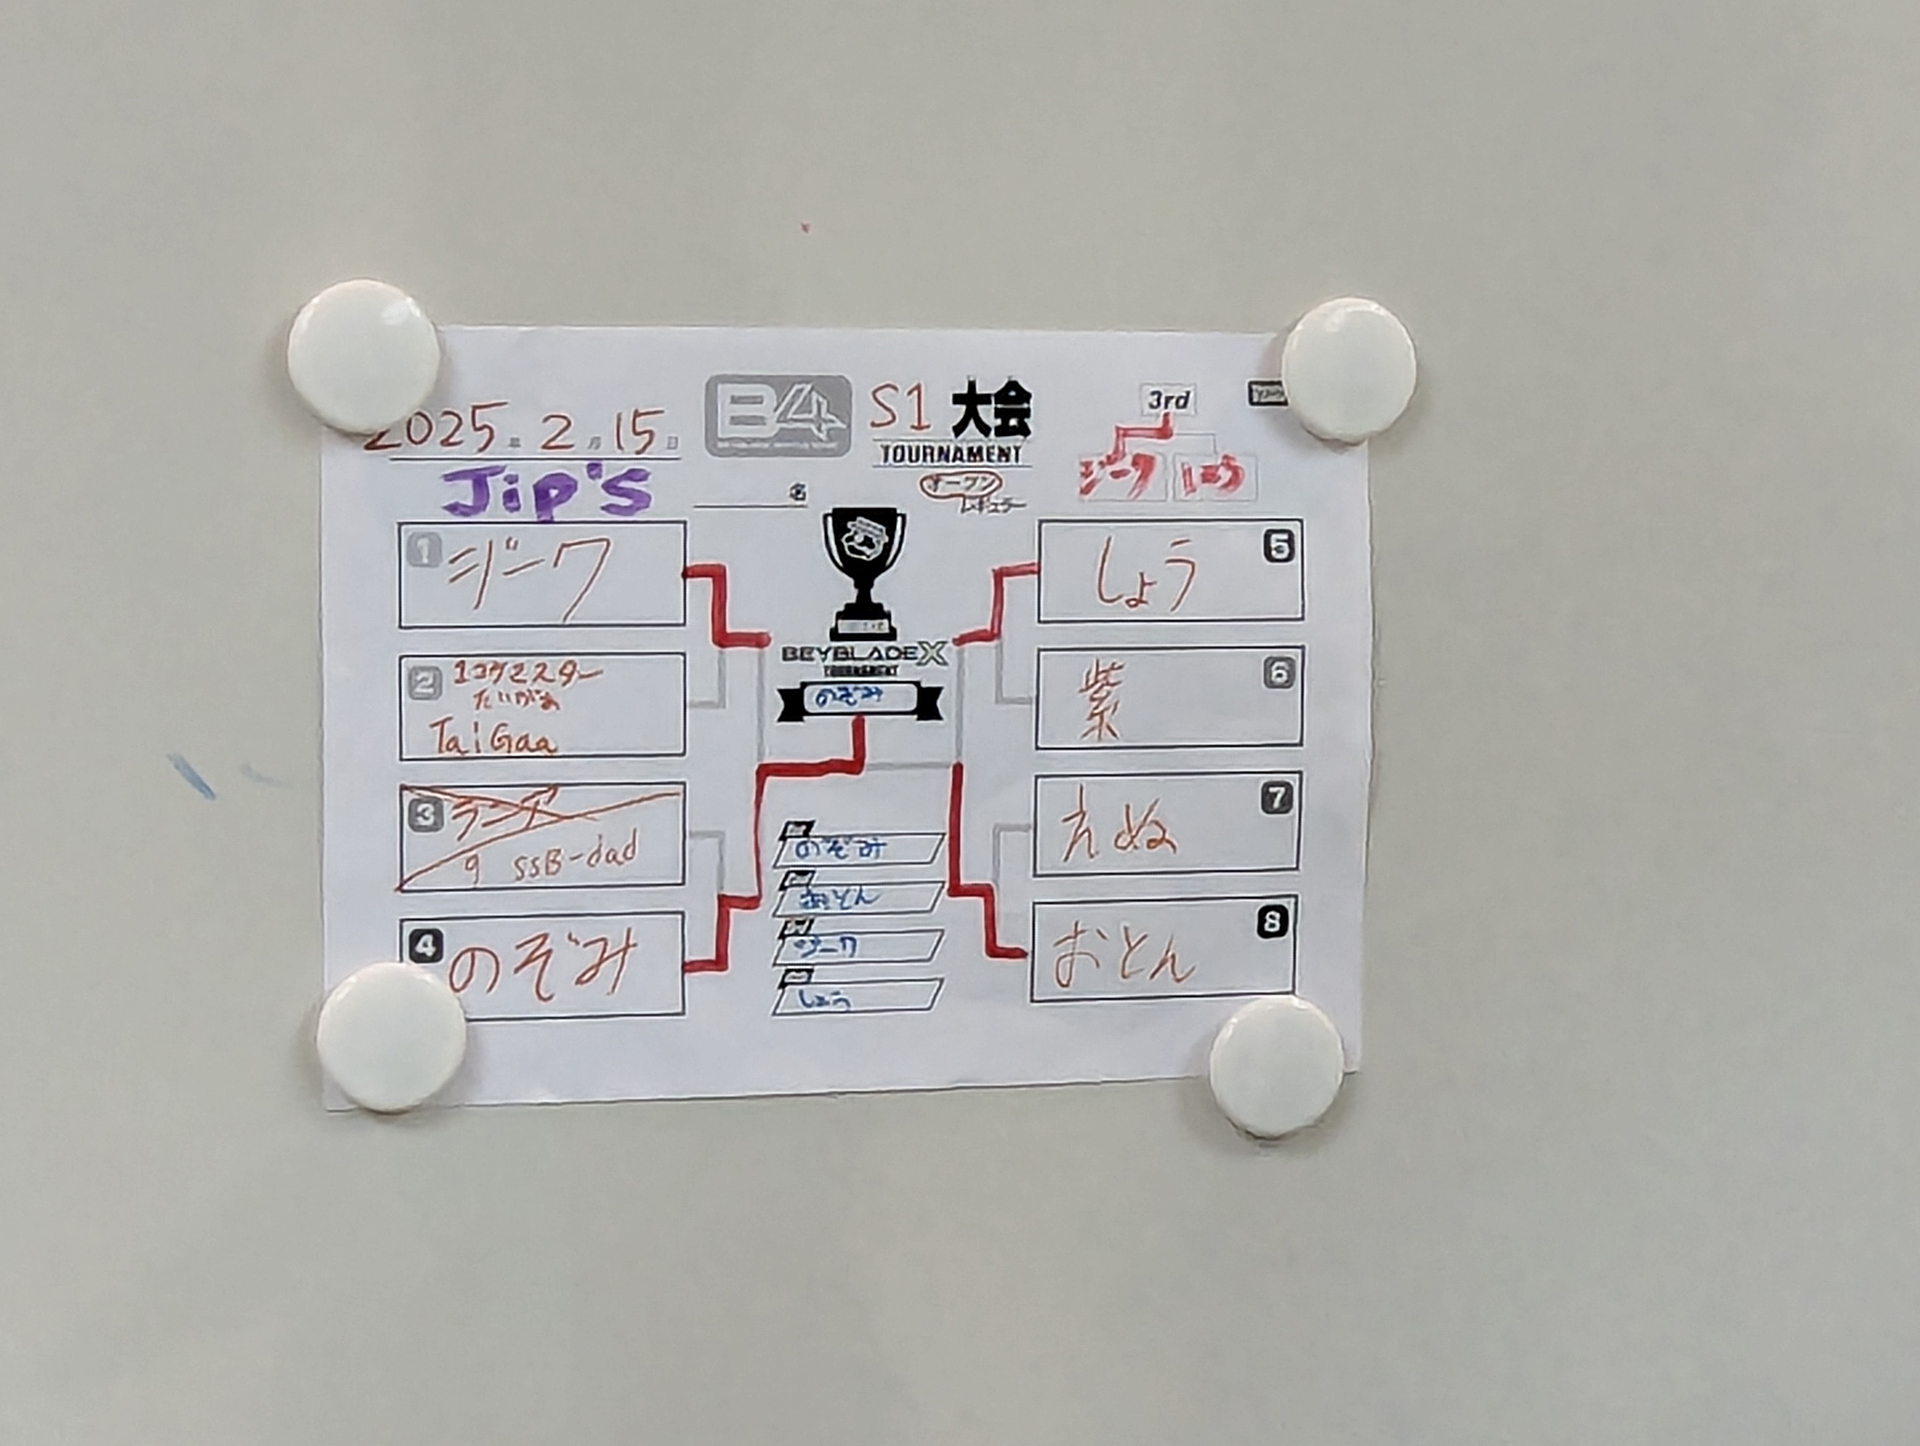 2025年 2月 15日
B4 S1 大会
TOURNAMENT
3rd
Jip's
名
オープン
レギュラー
ジーク しょう
1 ジーク
2
たいがぁ
TaiGaa
3
9 SSB-dad
4 のぞみ
BEYBLADE X
TOURNAMENT
のぞみ
のぞみ
おとん
ジーク
しょう
しょう 5
紫 6
えぬ 7
おとん 8